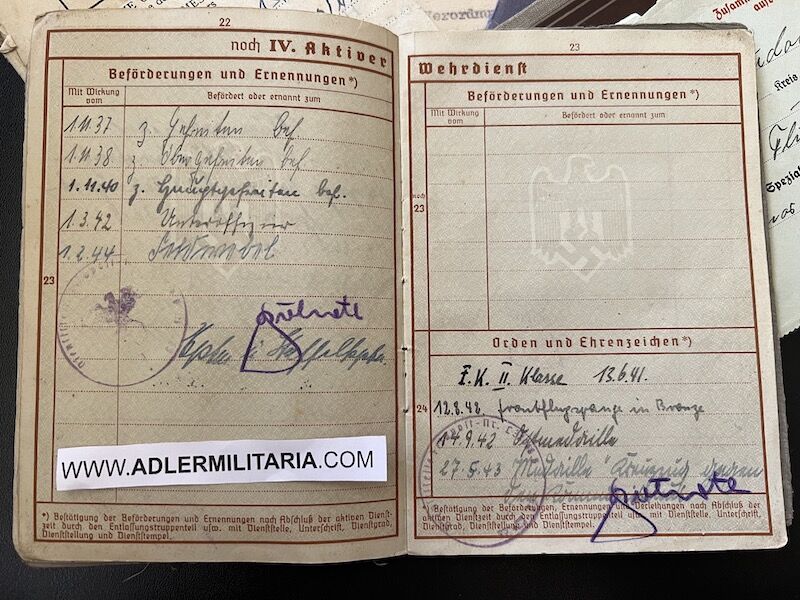 22
noch IV. Aktiver
Beförderungen und Ernennungen*)
Mit Wirkung vom
Befördert oder ernannt zum
1.11.37 z. Gefreiten bef.
1.11.38 z. Obergefreiten bef.
1.11.40 z. Hauptgefreiten bef.
1.3.42 Unteroffizier
1.2.44 Feldwebel
23
WWW.ADLERMILITARIA.COM
*) Bestätigung der Beförderungen und Ernennungen nach Abschluß der aktiven Dienst-
zeit durch den Entlassungstruppenteil usw. mit Dienststelle, Unterschrift, Dienstgrad,
Dienststellung und Dienststempel.
23
Wehrdienst
Beförderungen und Ernennungen*)
Mit Wirkung vom
Befördert oder ernannt zum
noch
23
Orden und Ehrenzeichen*)
E.K. II. Klasse 13.6.41.
24
12.8.42 Frontflugspange in Bronze
14.9.42 Ostmedaille
27.5.43 Medaille "Kreuzzug gegen
*) Bestätigung der Beförderungen, Ernennungen, Verleihungen nach Abschluß der
aktiven Dienstzeit durch den Entlassungstruppenteil usw. mit Dienststelle, Unterschrift,
Dienstgrad, Dienststellung und Dienststempel.
Kreis